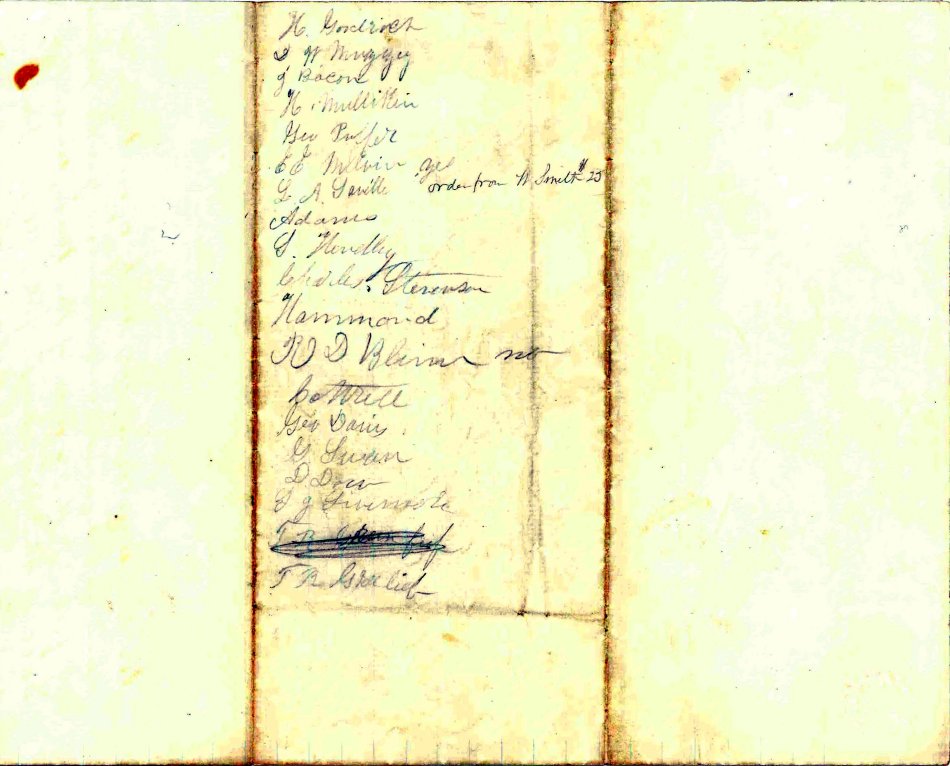 H. Goodrich
W Muzzey
J Bacon
H. Mullikin
Geo Puffer
E E Melvin yes
L. A. Saville order from W Smith $25
Adams
S. Hendley
Charles Stevenson
Hammond
R D Blinn no
Cottrell
Geo Davis
G Swan
D Dow
J Livermore
T B Greenlief